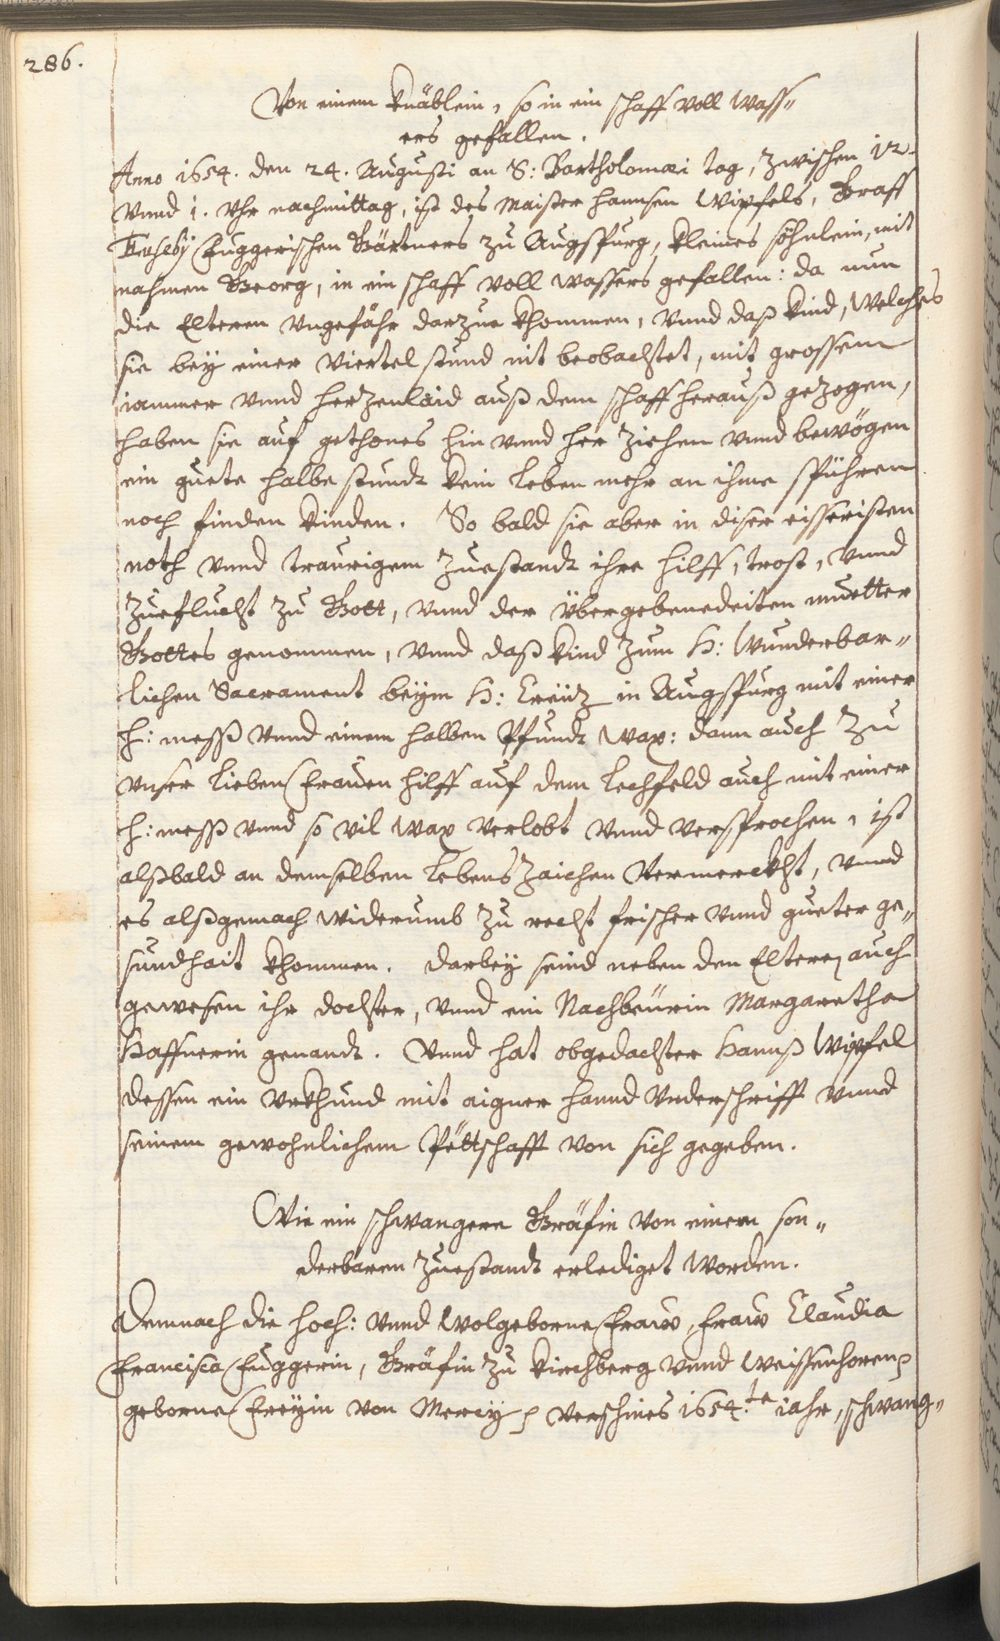 286.
Von einem Knäblein, so in ein schaff voll Wass„
ers gefallen.
Anno 1654. den 24. Augusti an S: Bartholomæi tag, zwischen 12.
vnnd 1. Vhr nachmittag, ist des Maister Hannsen Wipfels, Graff
Fuggerischen Gärtners zu Augspurg, kleines söhnlein, mit
nahmen Georg, in ein schaff voll wassers gefallen: da nun
die Elteren vngefähr darzue khommen, vnnd daß kind, welches
sie bey einer Viertel stund nit beobachtet, mit grossem
iammer vnnd herzenlaid auß dem schaff herauß gezogen,
haben sie auf gethones hin vnnd her ziehen vnnd bewögen
ein guete halbe stundt kein leben mehr an ihme spühren
noch finden kinden. So bald sie aber in diser eisseristen
noth vnnd traurigem zuestandt ihre hilff, trost, vnnd
zueflucht zu Gott, vnnd der übergebenedeiten muetter
Gottes genommen, vnnd daß kind zum H: Wunderbar„
lichen Sacrament beÿm H: Creütz in Augspurg mit einer
H: mess vnnd einem halben Pfundt wax: dann auch zu
vnser lieben Frauen hilff auf dem Lechfeld auch mit einer
H: mess vnnd so vil wax verlobt vnnd versprochen, ist
alßbald an demselben lebens zaichen vermerckht, vnnd
es alßgemach widerumb zu recht frischer vnnd gueter ge„
sundhait khommen. Darbey seind neben den Elteren auch
gewesen ihr dochter, vnnd ein Nachbeürin Margaretha
Haffnerin genandt. Vnnd hat obgedachter Hannß Wipfel
dessen ein vrkhund mit aigner hannd Vnderschrifft vnnd
seinem gewohnlichem Pettschafft von sich gegeben.
Wie ein schwangere Gräfin von einem son„
derbaren zuestandt erlediget worden.
Demnach die Hoch: vnnd Wolgeborne Fraw, Fraw Claudia
Francisca Fuggerin, Gräfin zu Kirchberg vnnd Weissenhoren
geborne Freÿin von Mercÿ verschines 1654.te iahr, schwang„